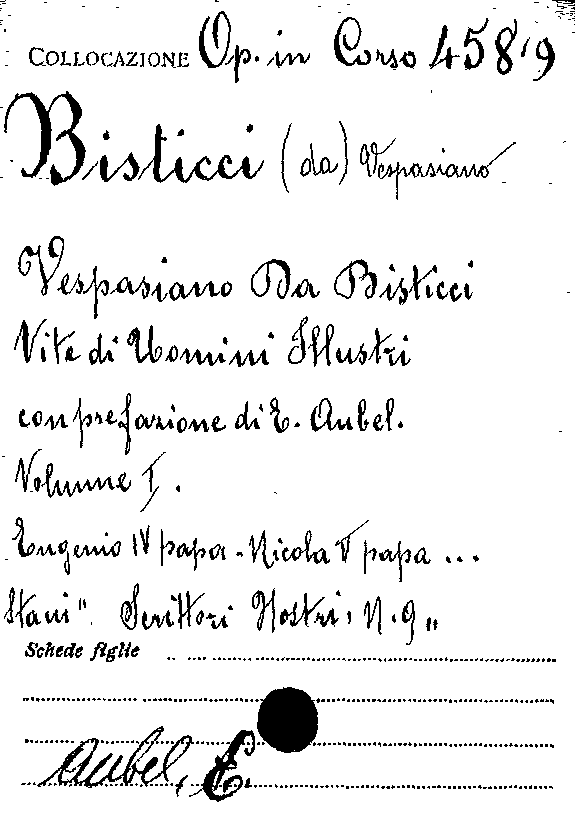 COLLOCAZIONE Op. in Corso 458/9
Bisticci (da) Vespasiano
Vespasiano Da Bisticci
Vite di Uomini Illustri
con prefazione di E. Aubel.
Volume I.
Eugenio IV papa - Nicola V papa ...
Scrittori Nostri, N. 9 "
Schede figlie
Aubel, E.